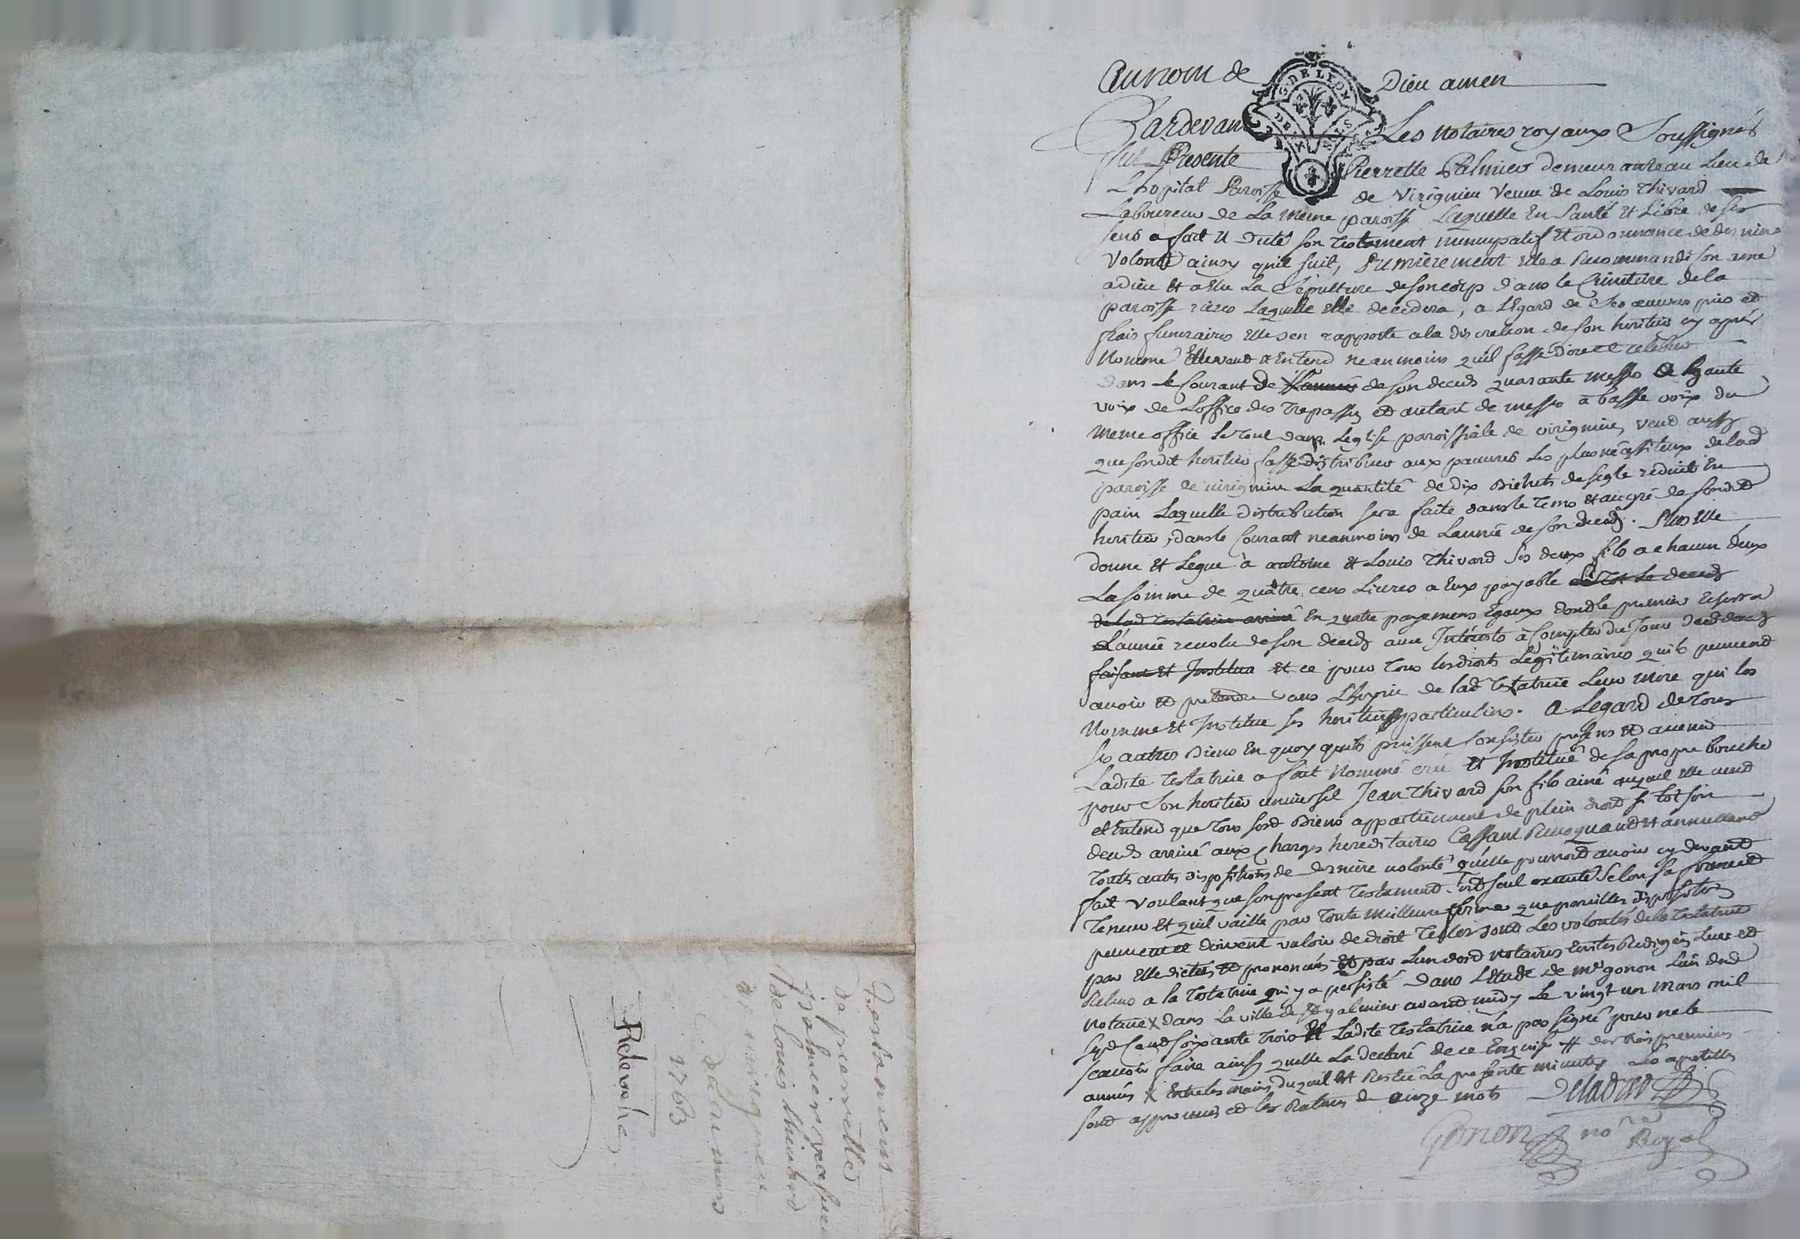 Au nom de Dieu amen
G. DE LYON
Pardevant Les Notaires royaux Soussignés
fut Presente Pierrette Palmier demeurante au Lieu de
L'hopital Paroisse de Virignieu Veuve de Louis Thivard
Laboureur de La meme paroisse Laquelle En Santé Et Libre de ses
sens a fait Et dicté son Testament nuncupatif Et ordonnance de derniere
Volonté ainsy qu'il suit, Premierement Elle a Recommandé son ame
a dieu Et a Elu La Sepulture de son corp dans le Cimetiere de la
paroisse riere Laquelle Elle decedera, a L'Egard de Ses œuvres pies et
frais funeraires Elle s'en rapporte a la discretion de son heritier cy après
Nommé Elle veut & Entend neanmoins qu'il fasse dire et celebrer
dans le Courant de L'année de son deceds quarante messes a haute
voix de L'office des Trepassés et autant de messes a basse voix du
meme office Le tout dans L'eglise paroissiale de virignieu, veut aussy
que sondit heritier fasse distribuer aux pauvres les plus nécessiteux de lad
paroisse de virignieu La quantité de dix Bichets de segle reduits En
pain Laquelle distribution sera faite dans le tems et au gré de sondit
heritier, dans le Courant neanmoins de L'année de son deceds. Plus Elle
donne Et Legue à antoine Et Louis Thivard ses deux fils a chacun deux
La somme de quatre cens Livres a Eux payable sitot le deceds
de lad testatrice arrivé En quatre payemens Egaux dont le premier Echerra
L'année revolu de son deceds aux Intérests à Compter du Jour dud deceds
faisant Et Institue Et ce pour tous les droits Legitimaires qu'ils peuvent
avoir et pretendre dans L'hoyrie de lad Testatrice Leur mere qui les
Nomme Et Institue ses heritiers particuliers. a L'egard de tous
ses autres Biens En quoy qu'ils puissent Consister presens et avenir
Ladite Testatrice a fait Nommé créé Et Institué de sa propre bouche
pour Son heritier universel Jean Thivard son fils ainé auquel Elle veut
et Entend que tous sesd Biens appartiennent de plein droit si tot son
deceds arrivé aux charges hereditaires Cassant Revoquant Et annullant
Touts autres dispositions de derniere volonté qu'elle pourroit avoir cy devant
fait voulant que son present Testament soit seul executé Selon sa forme et
Teneur Et qu'il vaille par Toute meilleure forme que pareilles dispositions
peuvent et doivent valoir de droit Telles sont Les volontés de la Testatrice
par Elle dictés Et prononcés Et par L'un desd Notaires Ecrites Redigés Lues et
Relues a la Testatrice qui y a persisté dans L'Etude de me gonon L'un desd
notaires X dans La ville de St galmier avant midy Le vingt un mars mil
sept Cent soixante trois Et Ladite Testatrice n'a pas signé pour ne le
scavoir faire ainsy quelle L'a declaré de ce Enquise # des trois premieres
années X Entre les mains duquel Et Restée La presente minutte Les apostilles
sont approuvés et les Ratures de onze mots
Gonon nore Royal
Testament
de pierrette
palmier veufve
de Louis thivard
de virignieu
du 21 mars
1763